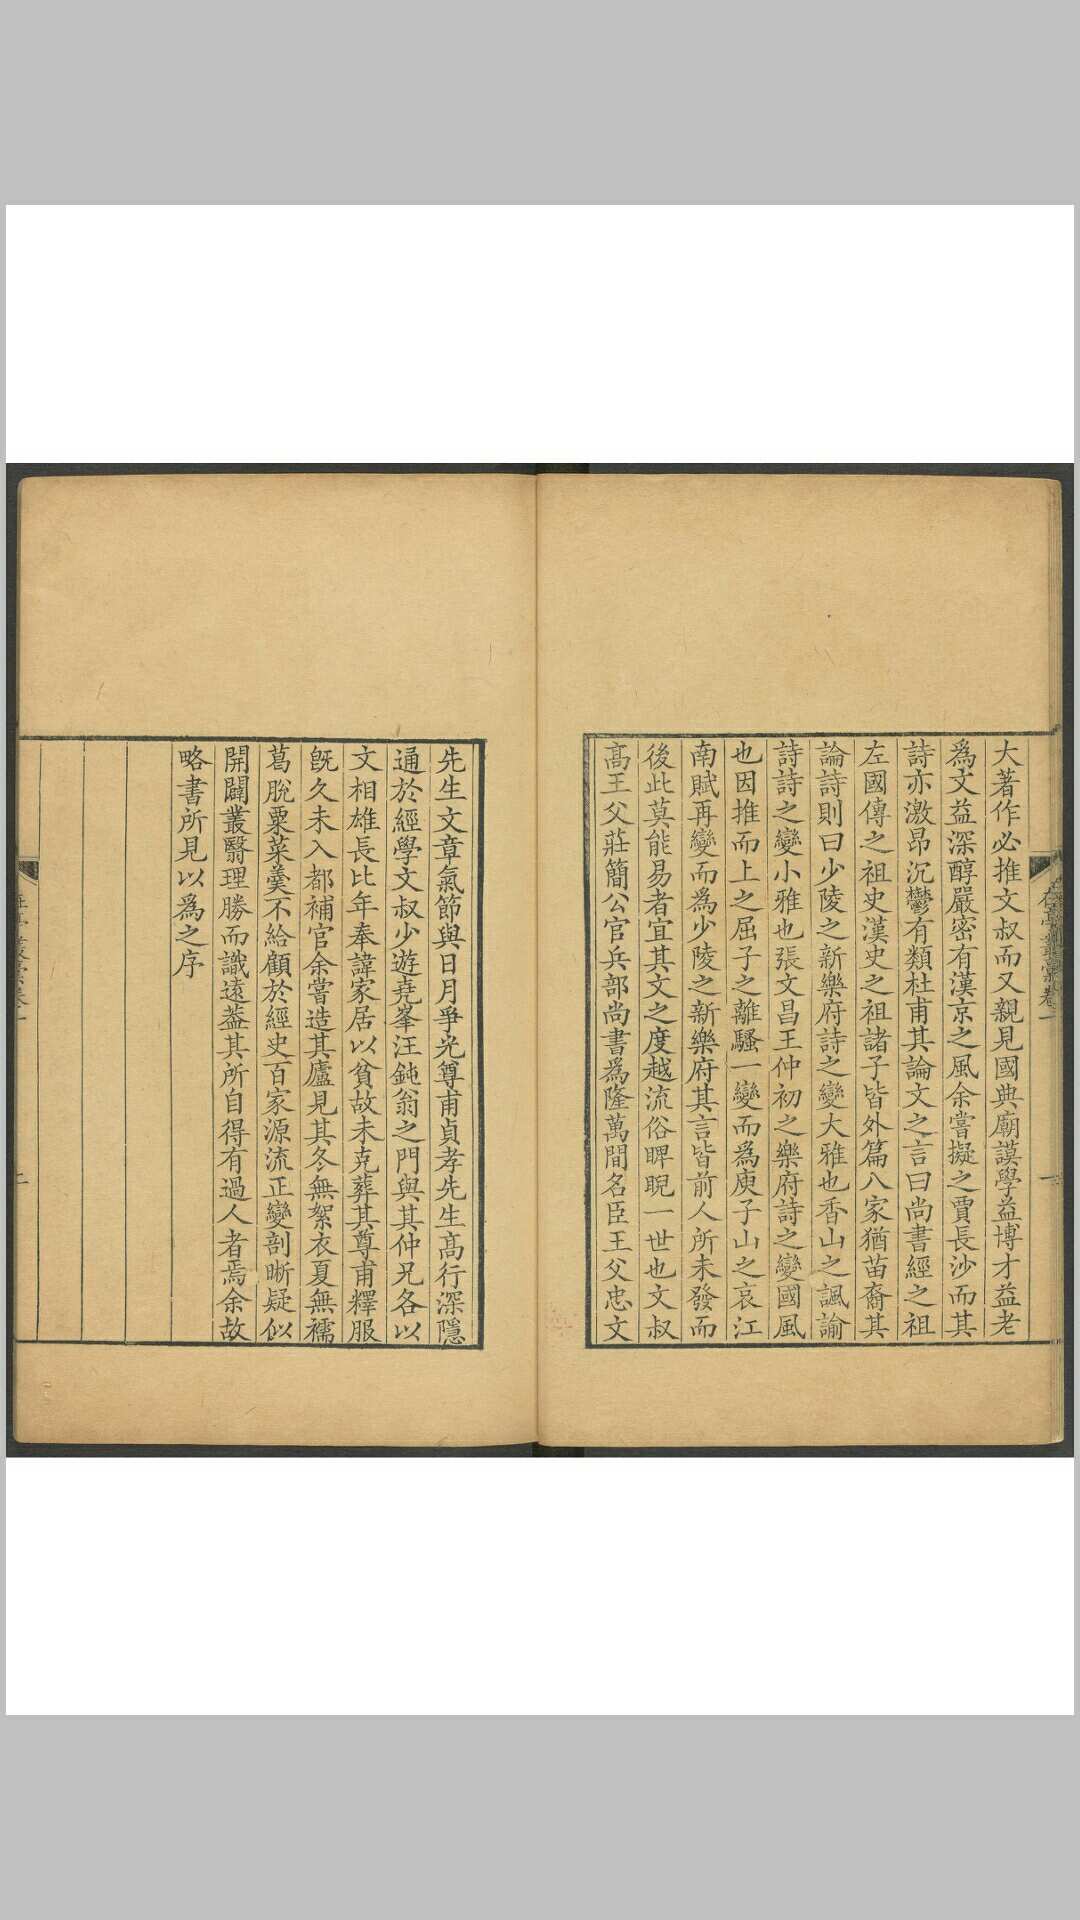 大著作必推文叔而又親見國典廟謨學益博才益老
爲文益深醇嚴密有漢京之風余嘗擬之賈長沙而其
詩亦激昂沉鬱有類杜甫其論文之言曰尚書經之祖
左國傳之祖史漢史之祖諸子皆外篇八家猶苗裔其
論詩則曰少陵之新樂府詩之變大雅也香山之諷諭
詩詩之變小雅也張文昌王仲初之樂府詩之變國風
也因推而上之屈子之離騷一變而爲庾子山之哀江
南賦再變而爲少陵之新樂府其言皆前人所未發而
後此莫能易者宜其文之度越流俗睥睨一世也文叔
高王父莊簡公官兵部尚書爲隆萬間名臣王父忠文
先生文章氣節與日月爭光尊甫貞孝先生高行深隱
通於經學文叔少遊堯峯汪鈍翁之門與其仲兄各以
文相雄長比年奉諱家居以貧故未克葬其尊甫釋服
旣久未入都補官余嘗造其廬見其冬無絮衣夏無襦
葛脫粟菜羹不給顧於經史百家源流正變剖晰疑似
開闢叢翳理勝而識遠葢其所自得有過人者焉余故
略書所見以爲之序